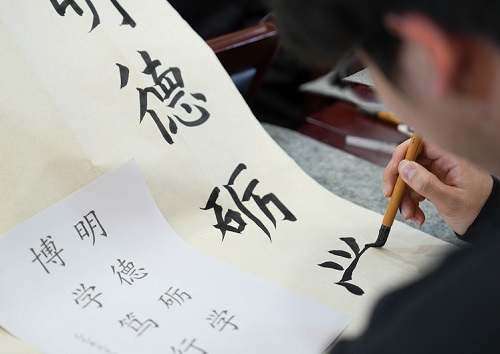 明德砺
明德砺学
博学笃行